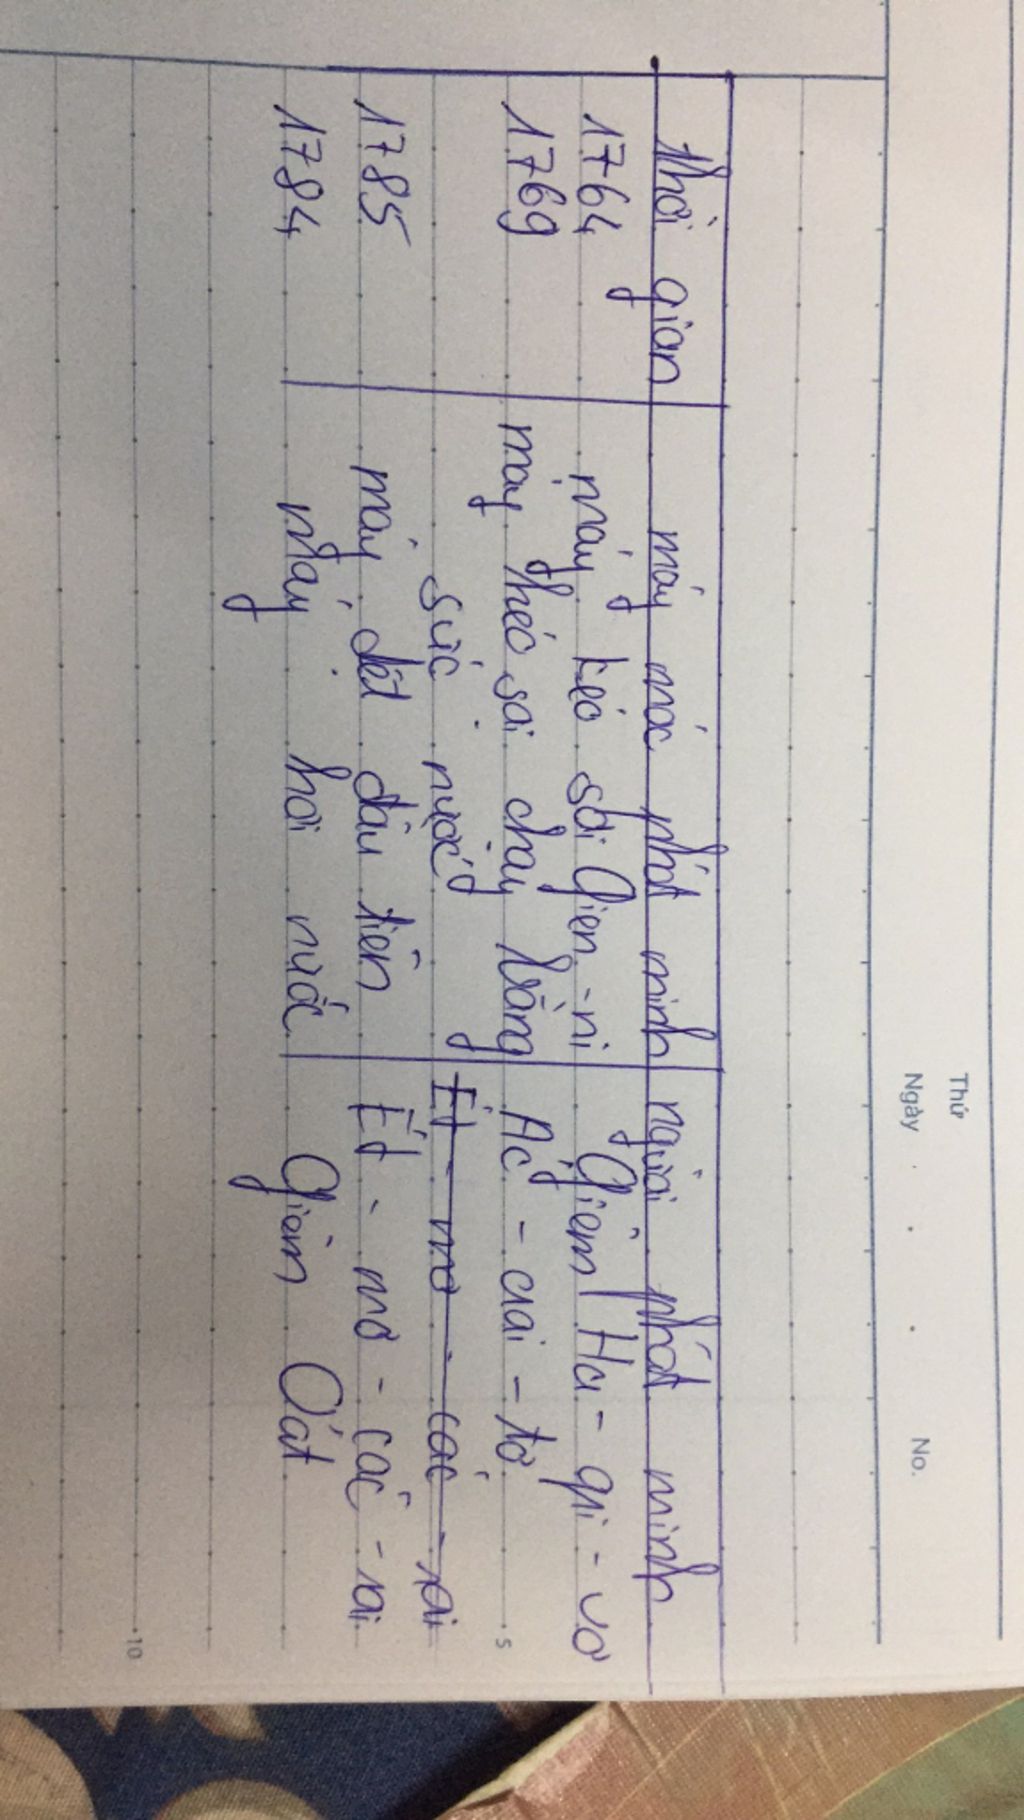 Thứ
Ngày . . . No.
Thời gian máy móc phát minh người phát minh
1764 máy kéo sợi Gien-ni Giêm Ha-gri-vơ
1769 máy kéo sợi chạy bằng Ác-crai-tơ
sức nước Ét-mơ-các-rai
1785 máy dệt đầu tiên Ét-mơ-các-rai
1784 Máy hơi nước Giêm Oát
5
10